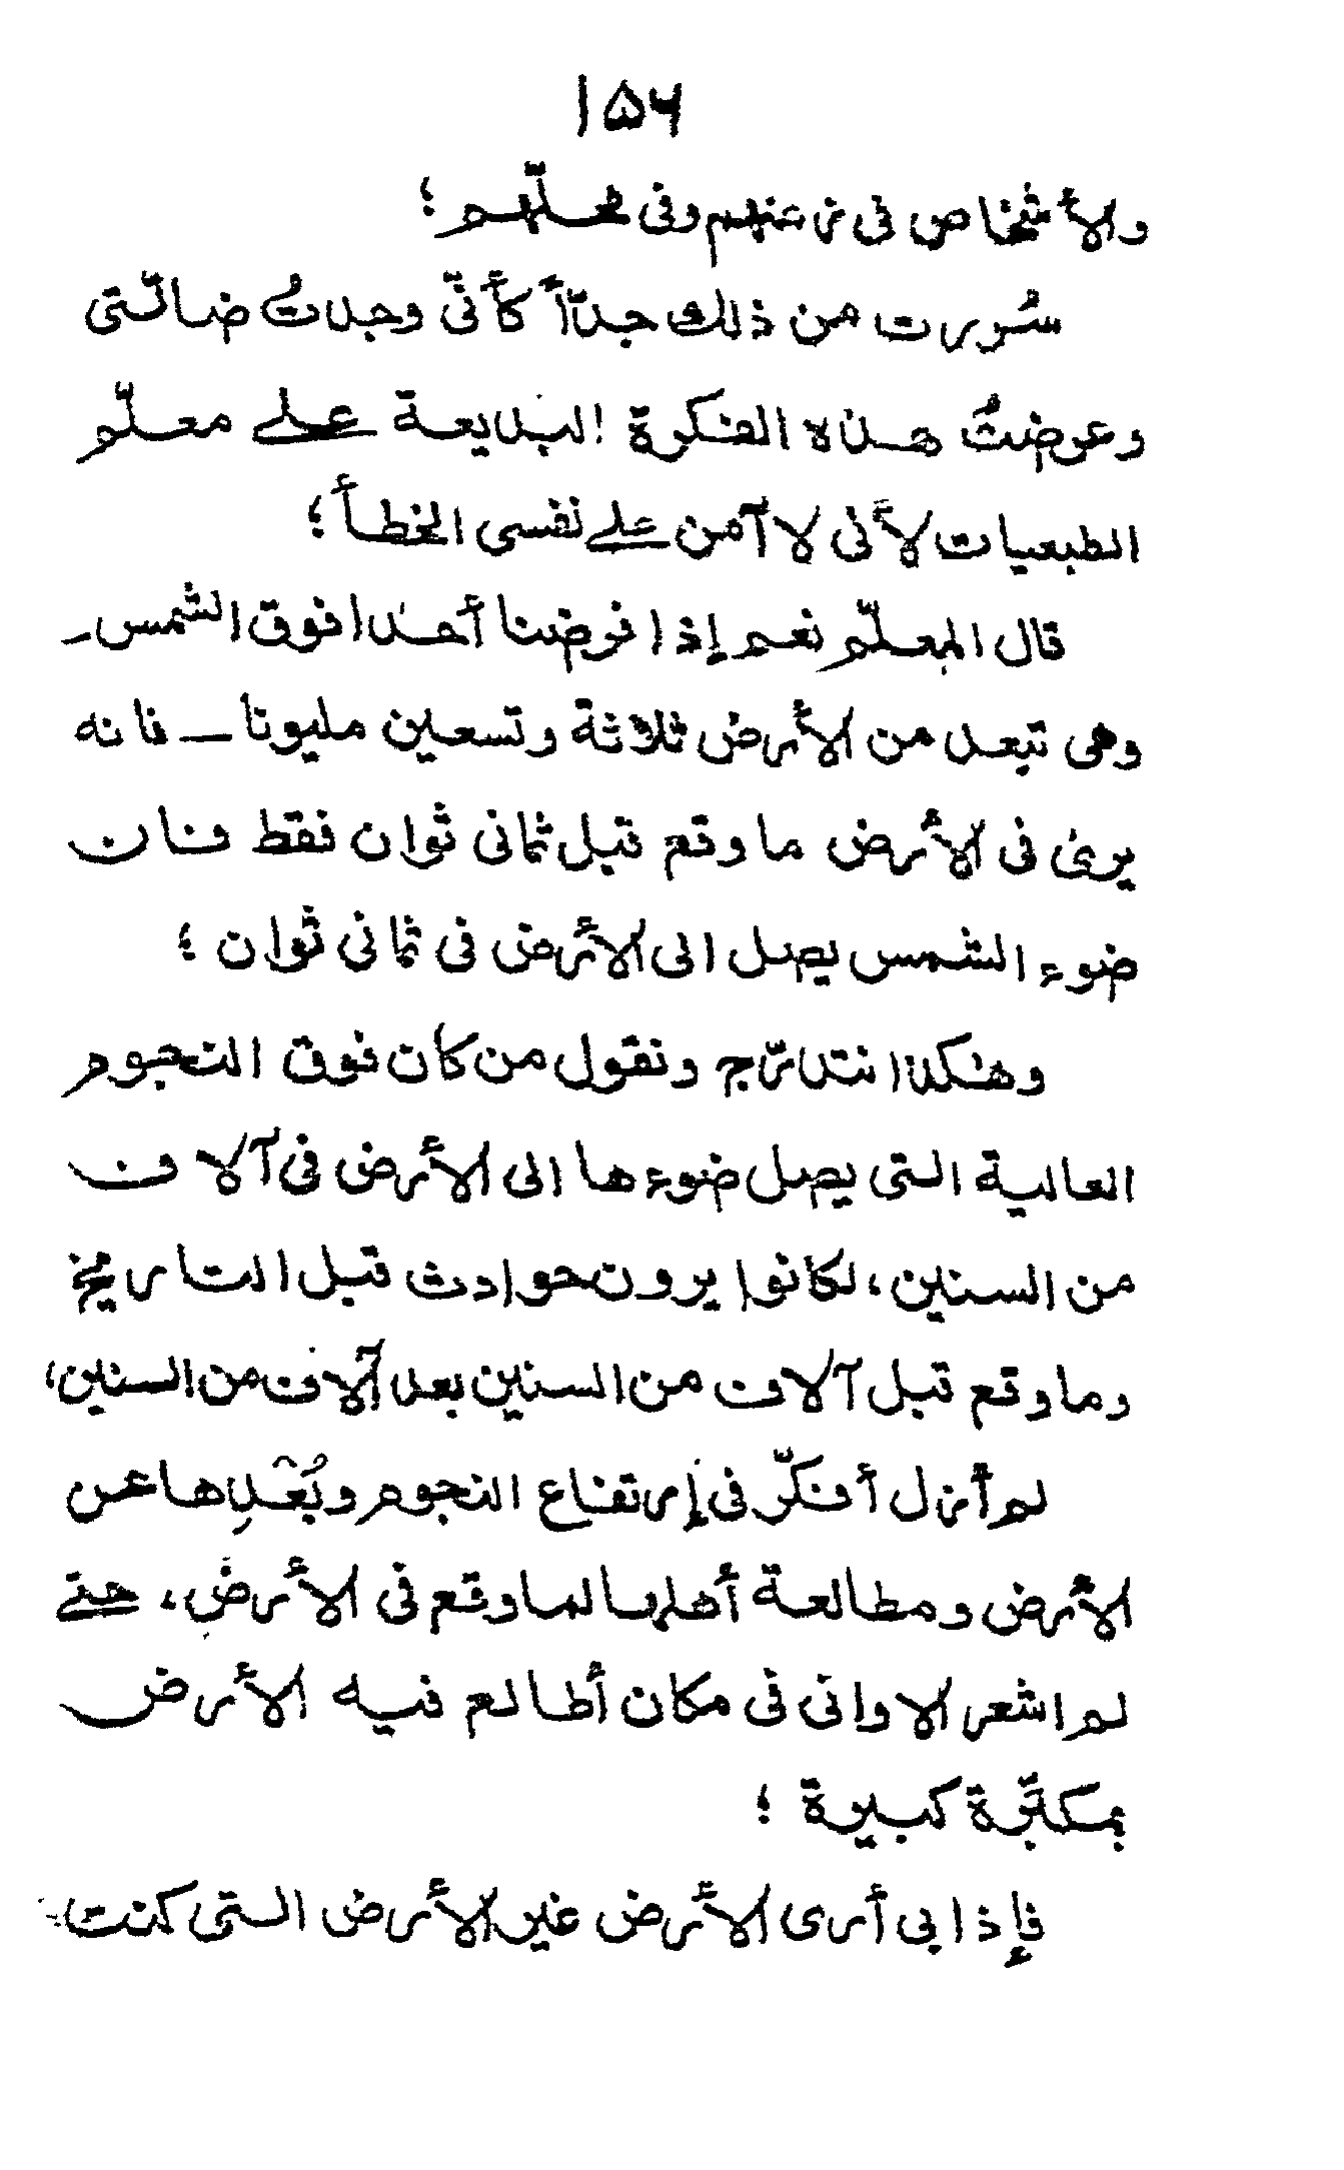 ۱۵۶
والأشخاص فى زمنهم وفى محلّهم؛
سُررت من ذلك جدّاً كأنّى وجدتُ ضالّتى
وعرضتُ هذه الفكرة البديعة على معلّم
الطبعيات لأنى لا آمن على نفسى الخطأ؛
قال المعلّم نعم إذا فرضنا أحدا فوق الشمس ـ
وهى تبعد من الأرض ثلاثة وتسعين مليونا ــ فانه
يرىٰ فى الأرض ما وقع قبل ثمانى ثوان فقط فان
ضوء الشمس يصل الى الأرض فى ثمانى ثوان ؛
وهٰكذا نتدرّج ونقول من كان فوق النجوم
العالية التى يصل ضوءها الى الأرض فى آلاف
من السنين، لكانوا يرون حوادث قبل التاريخ
وما وقع قبل آلاف من السنين بعد آلاف من السنين،
لم أزل أفكّر فى إرتفاع النجوم وبُعْدِها عن
الأرض ومطالعة أهلها لما وقع فى الأرض، حتى
لم اشعر الا وانى فى مكان أطالع فيه الأرض
بمكبّرة كبيرة ؛
فإذا بى أرى الأرض غير الأرض التى كنت